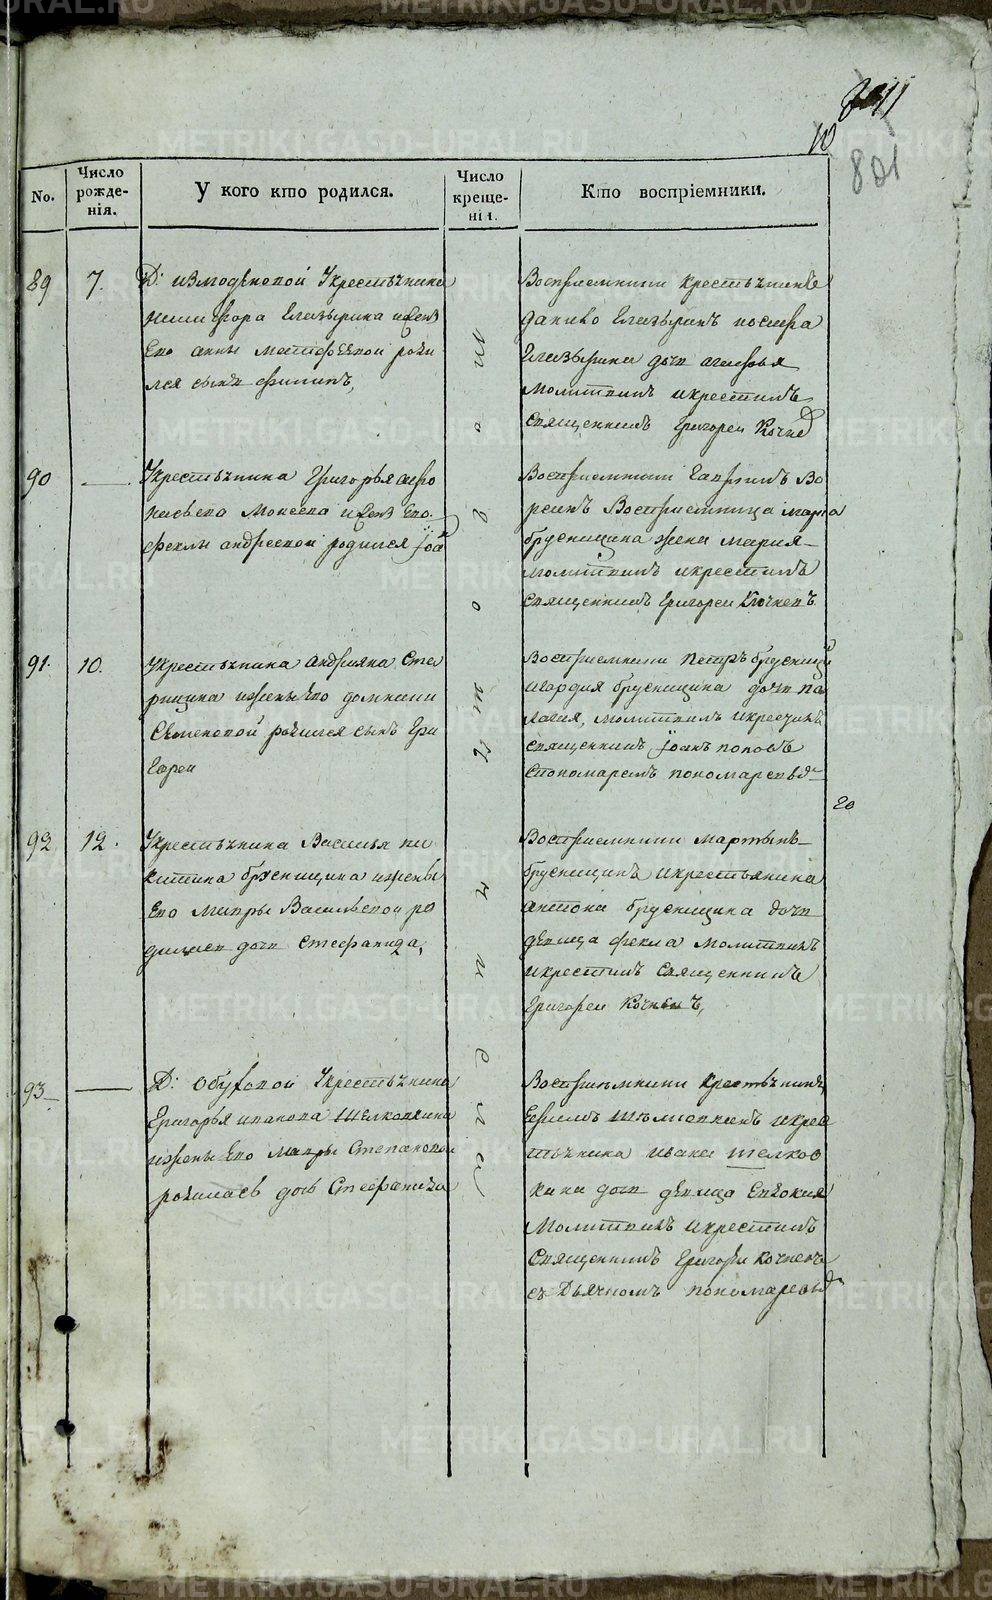 10
801
No.
Число рожде-нія.
У кого кто родился.
Число креще-нія.
Кто воспріемники.
89
7.
Д: Измоденовой Укрестьянина
Никифора Глазырина ижены
Его анны роди
лся сынъ филипъ,
Воспріемники крестьянинъ
данило Глазыринъ
Глазырина дочь
Молитвилъ икрестилъ
Священникъ Григореи Кочнев
90
Укрестьянина Григорья афо
насьева Моисеева ижены Его
феклы андреевои родился Іоан
Воспріемники Гаврилъ Во
ронинъ Воспріемница мариа
брусницина жена Мария
Молитвилъ икрестилъ
Священникъ Григореи Кочневъ
91.
10.
Укрестьянина андрияна Ста
рицина ижены Его домники
Семеновой родился сынъ Гри
Гореи
Воспріемники петръ брусницин
брусницина дочь па
лагия, молитвилъ икрестилъ
священникъ Іоанъ поповъ
Спономаремъ пономаревы
20
92
12.
Укрестьянина Василья ни
китина брусницина ижены
Его Мавры Васильевои ро
дилася дочь Стефанида,
Воспріемники мартынъ
брусницинъ икрестьянина
антона брусницина дочь
дѣвица фекла молитвилъ
икрестилъ Священникъ
Григореи Кочневъ,
93
Д: Обуховой Укрестьянина
Григорья иванова Шелковкина
ижены Его Мавры Степановои
родилась дочь Стефанида
Воспріемники крестьянинъ
Ефимъ икрес
тьянина ивана Шелков
кина дочь дѣвица Евдокия
Молитвилъ икрестилъ
Священникъ Григореи Кочневъ
съ Дьячкомъ пономаревы
тогоже числа
METRIKI.GASO-URAL.RU